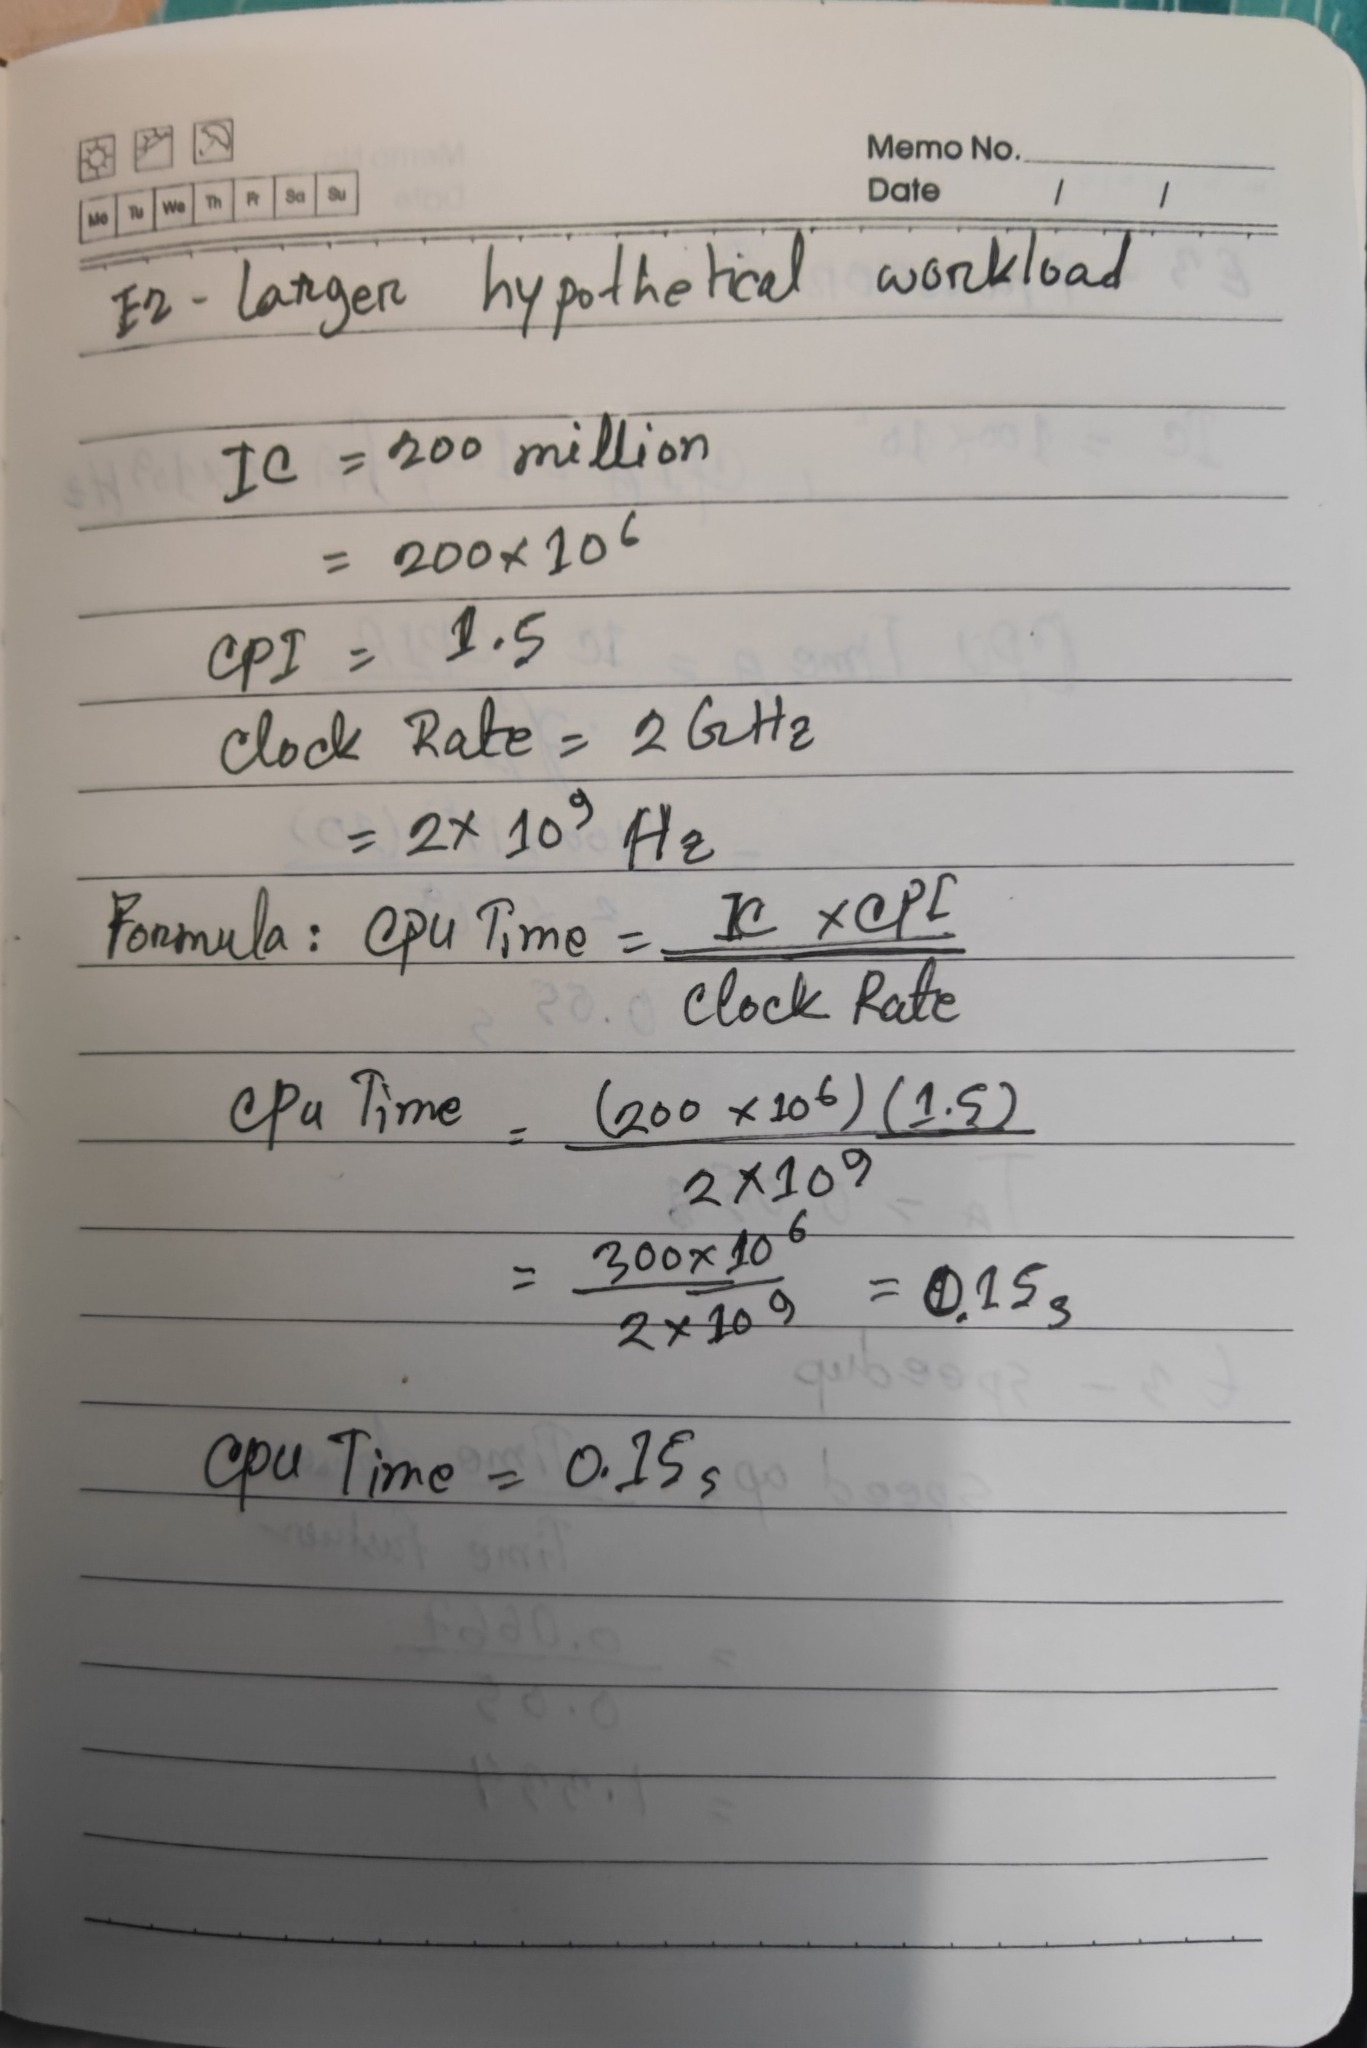 Memo No.
Date / /
Mo Tu We Th Fr Sa Su
E2 - Larger hypothetical workload
IC = 200 million
= 200 × 10⁶
CPI = 1.5
Clock Rate = 2 GHz
= 2 × 10⁹ Hz
Formula: CPU Time = IC × CPI / Clock Rate
CPU Time = (200 × 10⁶) (1.5) / 2 × 10⁹
= 300 × 10⁶ / 2 × 10⁹ = 0.15 s
CPU Time = 0.15 s